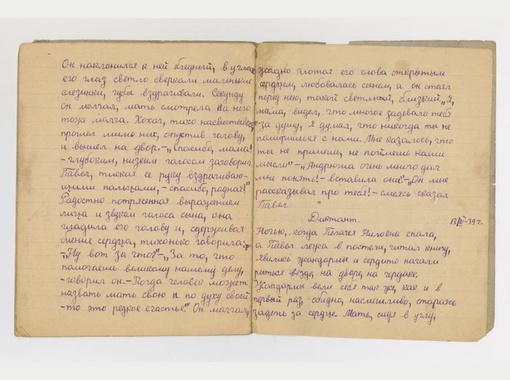 Он наклонился к ней бледный, в углах
его глаз светло сверкали маленькие
слезинки, губы вздрагивали. Секунду
он молчал, мать смотрела на него
тоже молча. Хохол, тихо насвистывая,
прошел мимо них, опустив голову,
и вышел на двор. „Спасибо, мама!"
-глубоким, низким голосом заговорил
Павел, тиская ее руку вздрагиваю-
щими пальцами, -спасибо, родная!"
Радостно потрясенная выражением
лица и звуком голоса сына, она
гладила его голову и, сдерживая
биение сердца, тихонько говорила:
-„Ну вот за что?" -„За то, что
помогаешь великому нашему делу,
-говорил он- Когда человек может
назвать мать свою и по духу своей
-то это редкое счастье." Он молчал,
жадно глотая его слова открытым
сердцем, любовалась сыном, а он стоял
перед нею, такой светлый, близкий. „Я,
мама, видел, что многое задевало тебя
за душу, Я думал, что никогда ты не
помиришься с нами. Мне казалось, что
ты не примешь, не поймешь наши
мысли" -„Андрюша очень много дал
мне понять! -вставила она" -„Он мне
рассказывал про тебя! -смеясь сказал
Павел.
Диктант.
Ночью, когда Пелагея Ниловна спала,
а Павел лежа в постели, читал книгу,
явились жандармы и сердито начали
рыться везде, на дворе, на чердаке.
Жандармы вели себя так же, как и в
первый раз обидно, насмешливо, стараясь
задеть за сердце. Мать, сидя в углу,